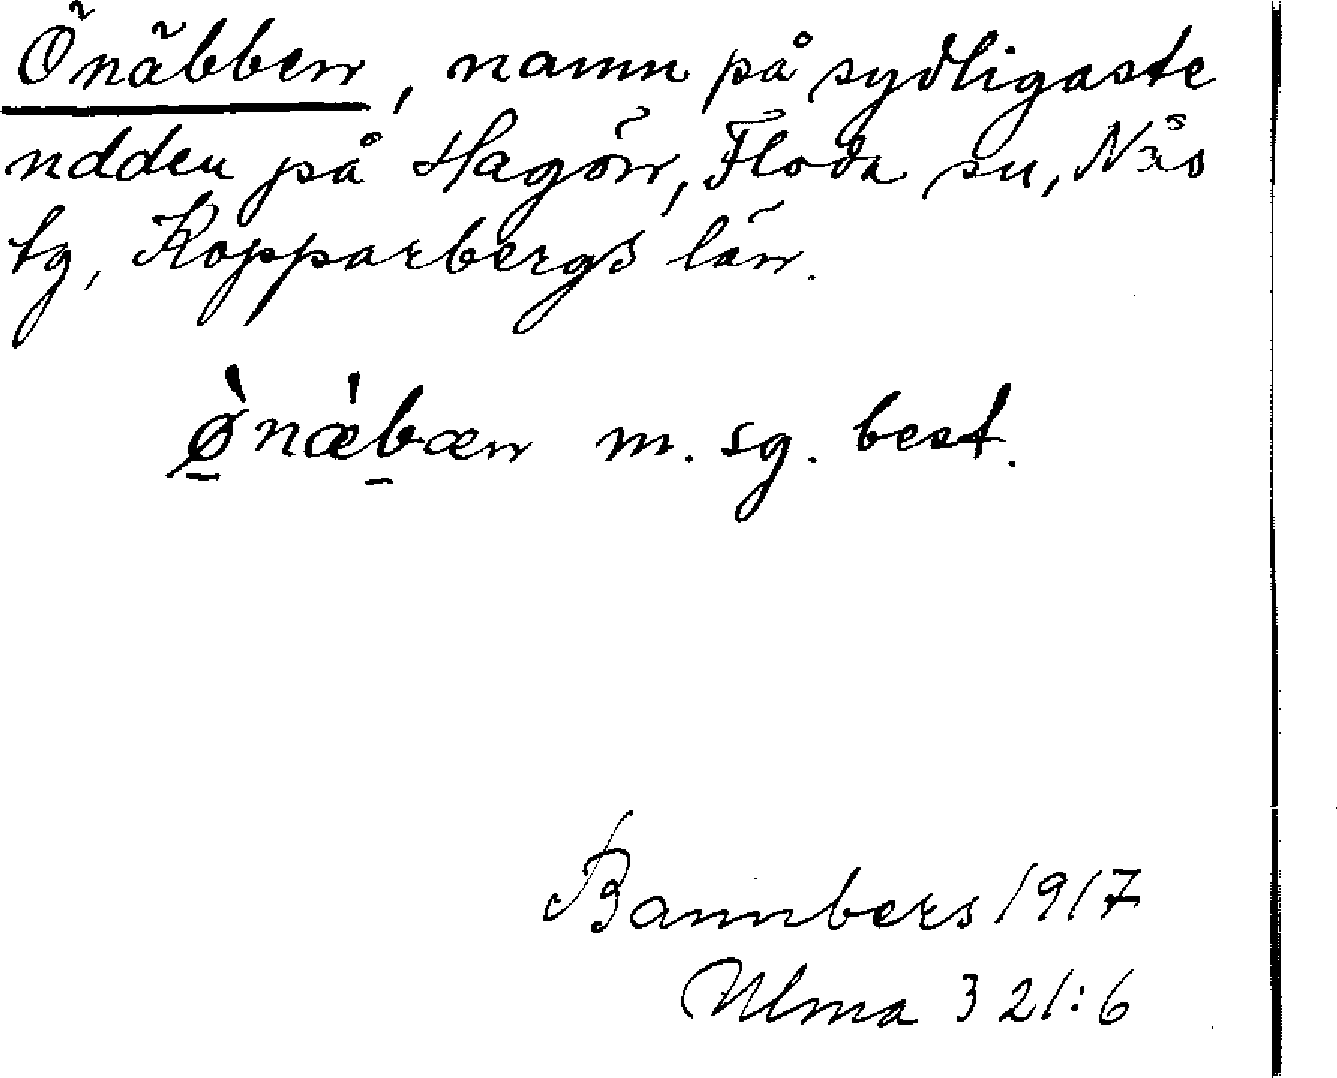 Önäbben, namn på sydligaste
udden på Hagön, Floda sn, Nås
tg, Kopparbergs län.
ø̠̀næ̀b̠æn m. sg. best.
Bannbers 1917
Ulma 321:6